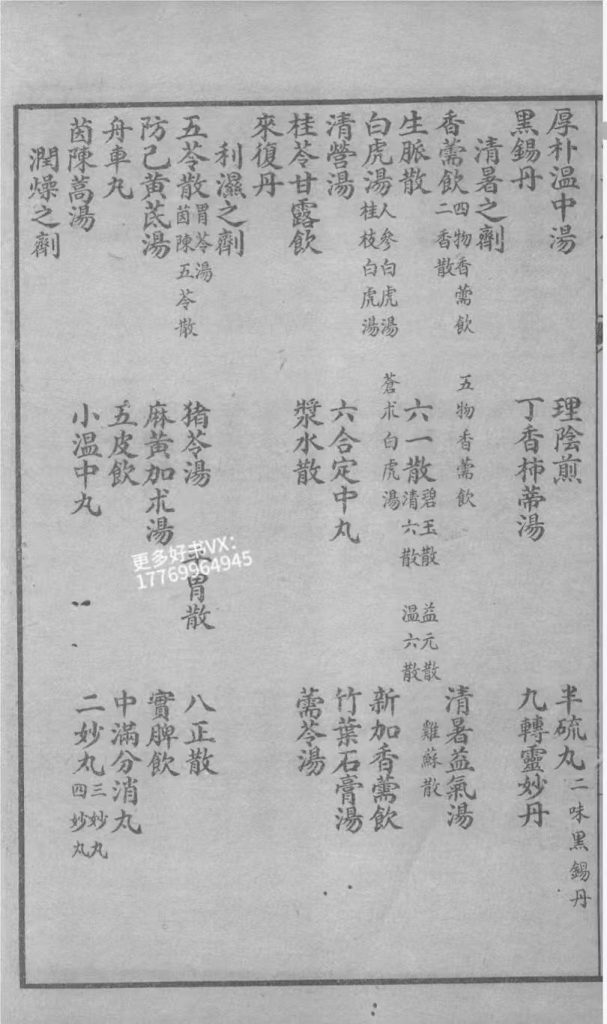 厚朴温中湯　理陰煎　半硫丸 二味黑錫丹
黑錫丹　丁香柿蒂湯　九轉靈妙丹
清暑之劑
香薷飲 四物香薷飲　五物香薷飲 二香散　清暑益氣湯
生脈散　六一散 碧玉散　益元散　雞蘇散 清六散　溫六散
白虎湯 人參白虎湯　蒼朮白虎湯 桂枝白虎湯　新加香薷飲
清營湯　六合定中丸　竹葉石膏湯
桂苓甘露飲　漿水散　薷苓湯
來復丹
利濕之劑
五苓散 胃苓湯 茵陳五苓散　猪苓湯　平胃散　八正散
防己黃芪湯　麻黃加朮湯　實脾飲
舟車丸　五皮飲　中滿分消丸
茵陳蒿湯　小溫中丸　二妙丸 三妙丸 四妙丸
潤燥之劑
更多好书VX:
17769964945